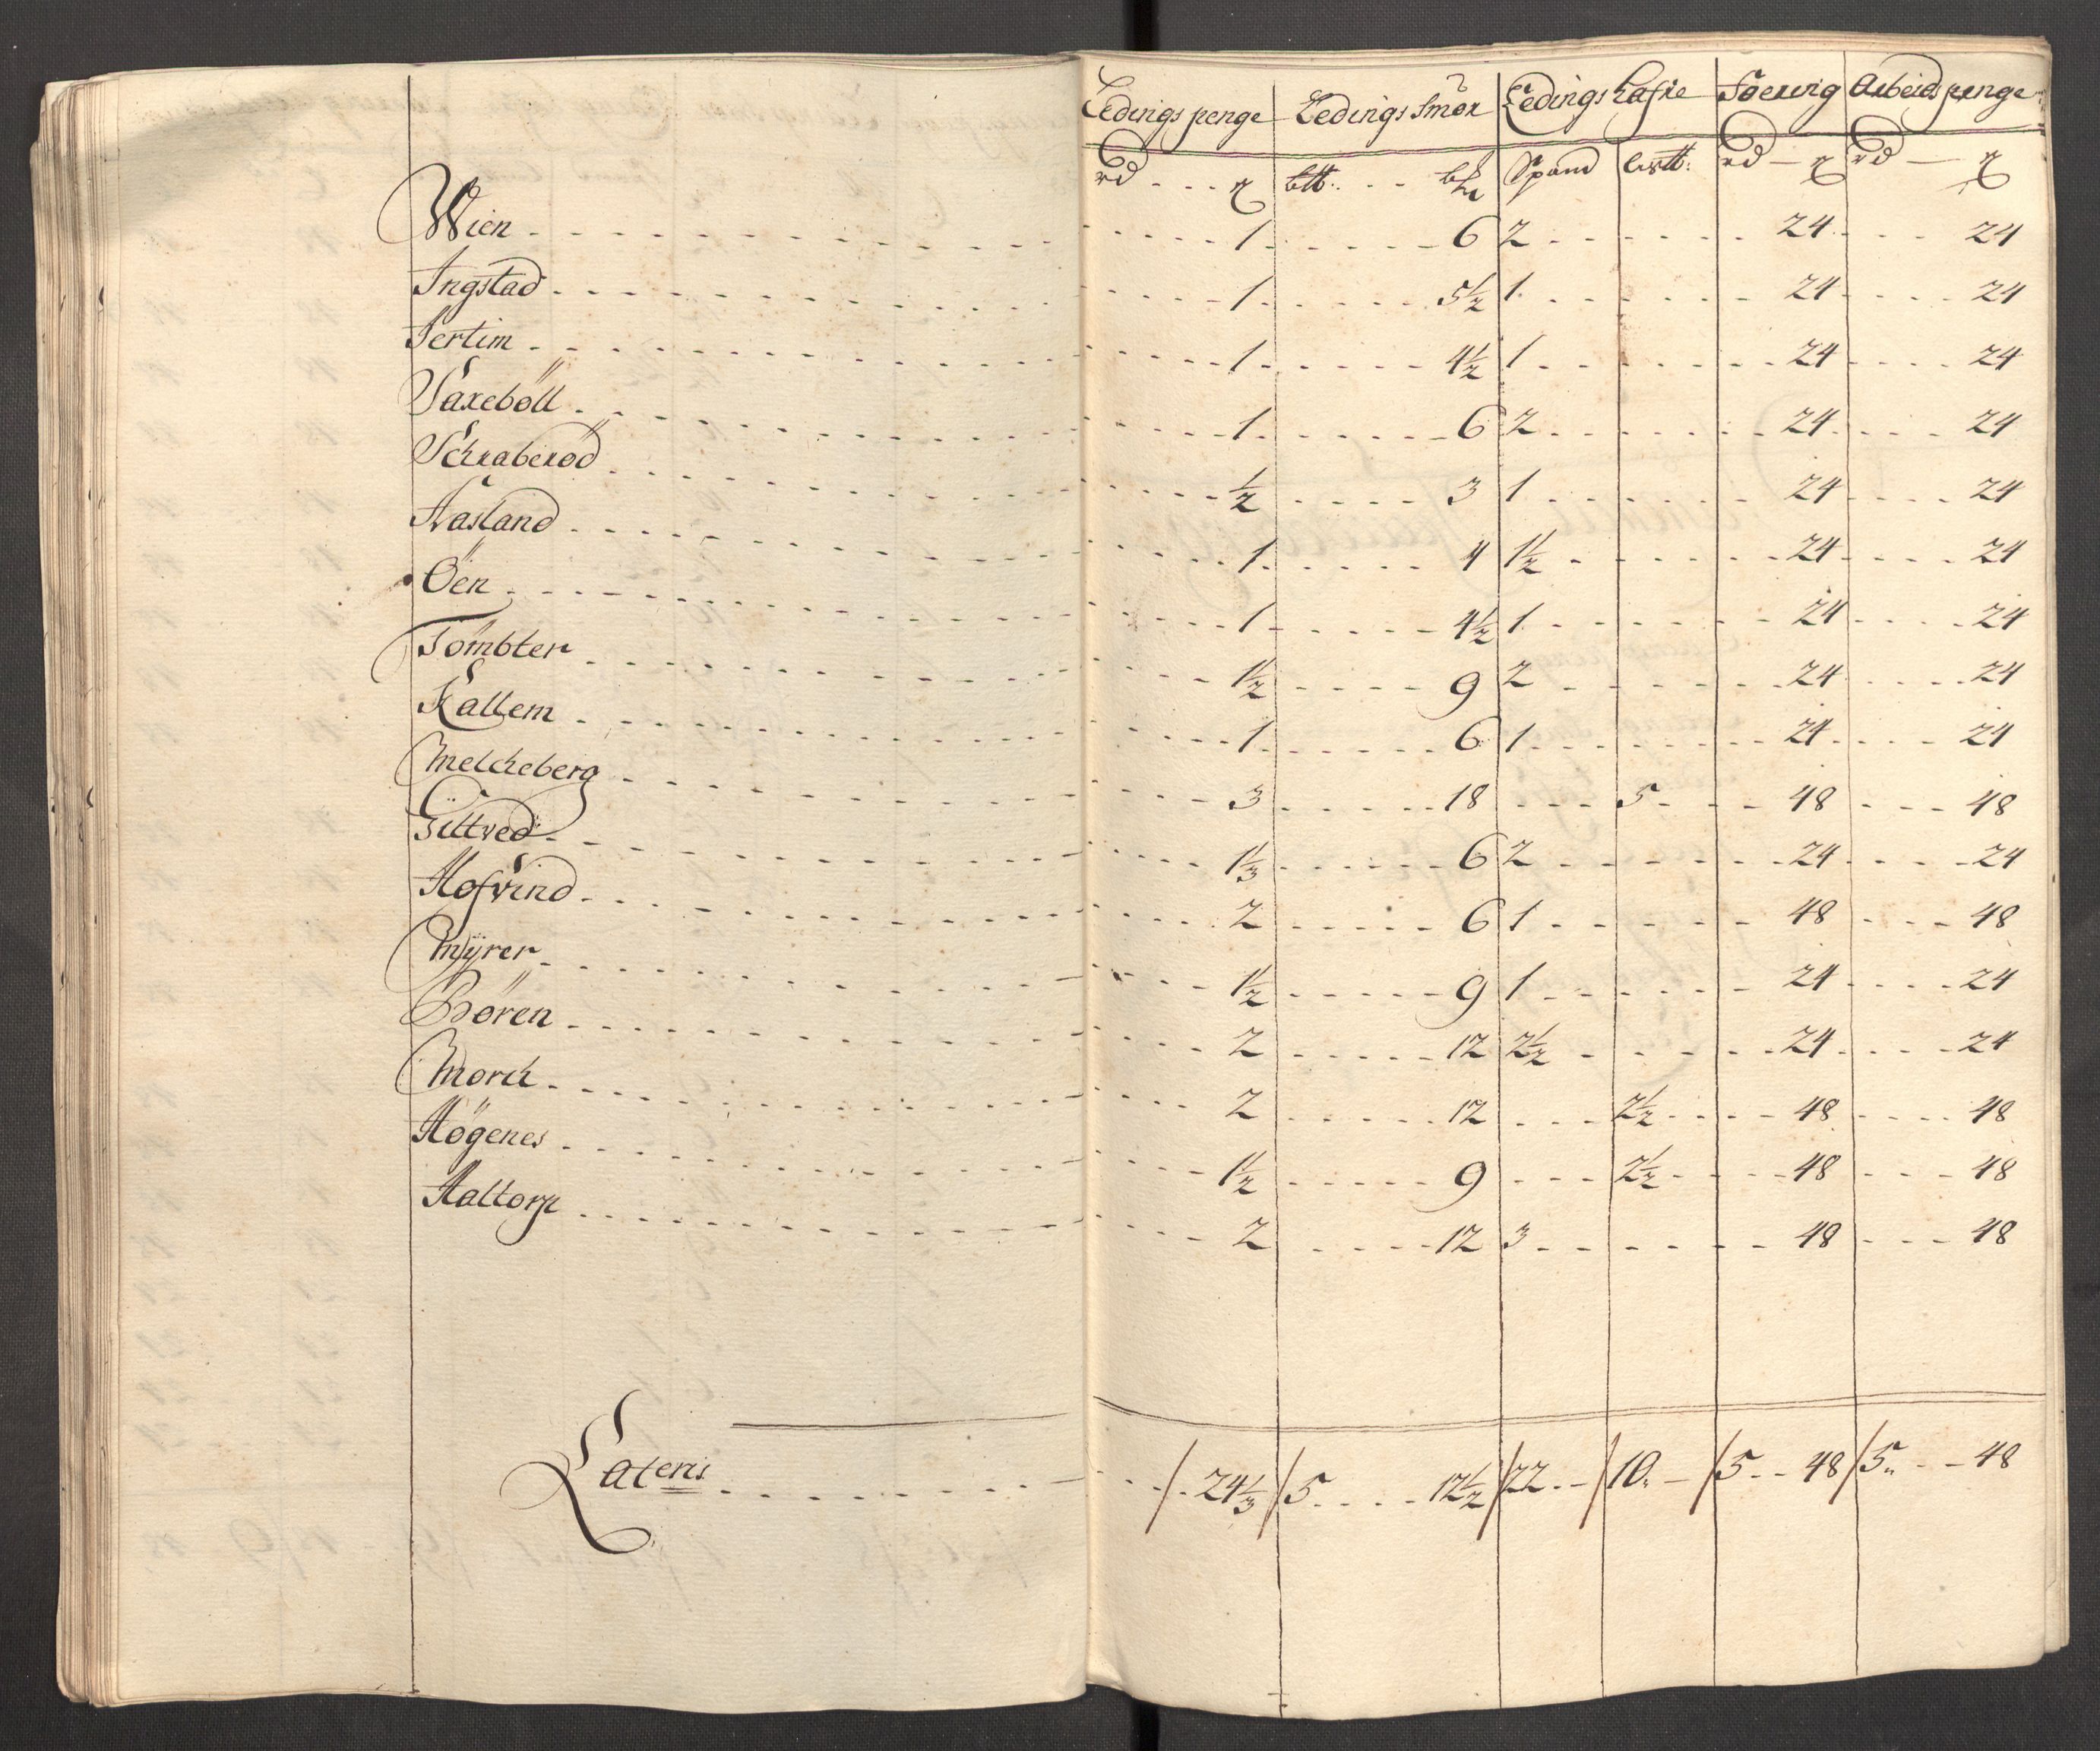 Ledings penge Ledings Smör Ledings hafre Foering Arbeids penge
rd ß btt: Spand Lestt: rd ß rd ß
Wien 1 6 2 24 24
Ingstad 1 5½ 1 24 24
Sertim 1 4½ 1 24 24
Saxeböll 1 6 2 24 24
Schraberöd ½ 3 1 24 24
Aasland 1 4 1½ 24 24
Öen 1 4½ 1 24 24
Tömbter 1½ 9 2 24 24
Kallem 1 6 1 24 24
Melcheberg 3 18 5 48 48
Gilttved 1⅓ 6 2 24 24
Hofvind 2 6 1 48 48
Myrer 1½ 9 1 24 24
Bören 2 12 2½ 24 24
Morch 2 12 2½ 48 48
Högenes 1½ 9 2½ 48 48
Haltorp 2 12 3 48 48
Lateris / 24⅓ / 5 12½ / 22 / 10 / 5 48 / 5 48